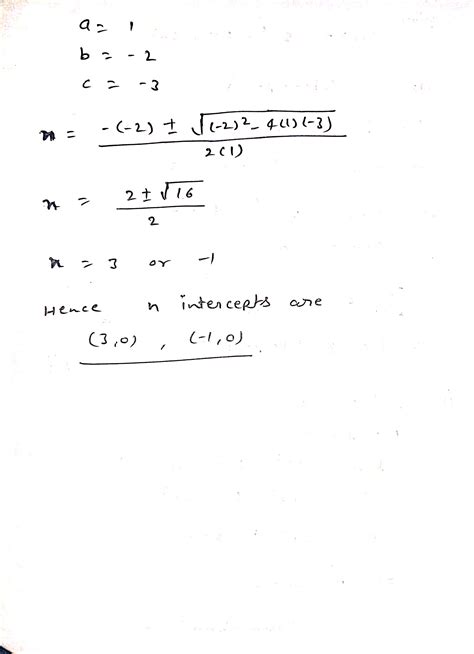 a = 1
b = - 2
c = -3
x = -(-2) ± √(-2)² - 4(1)(-3) / 2(1)
x = 2 ± √16 / 2
x = 3 or -1
Hence x intercepts are
(3,0) , (-1,0)